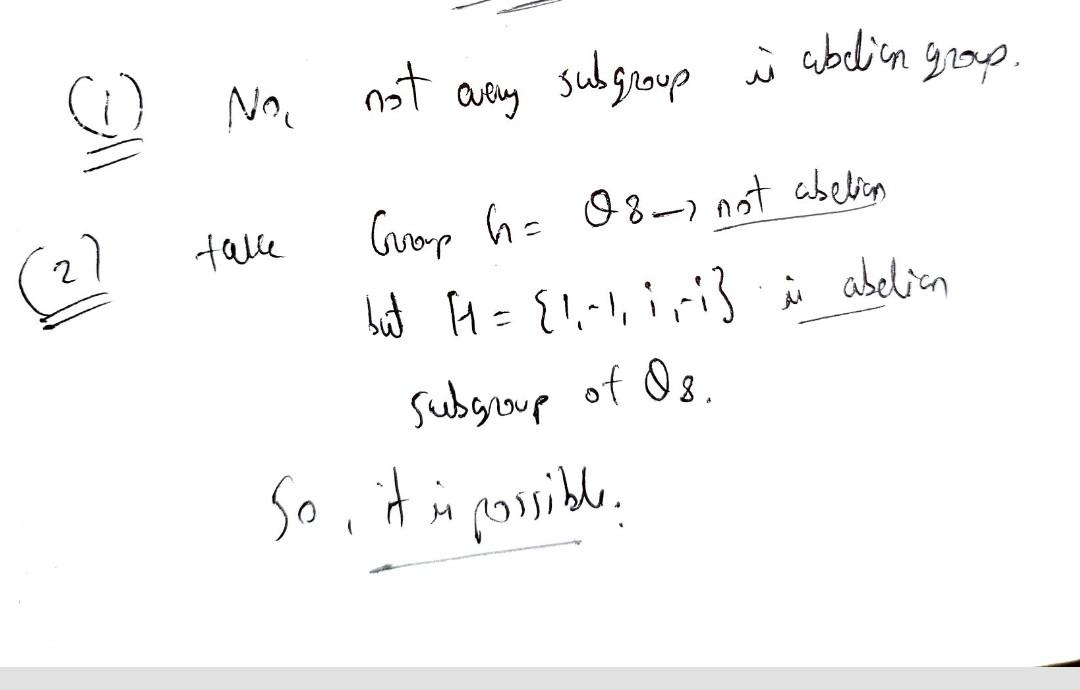 (1) No, not every subgroup is abelian group.
(2) take Group G = Q8 → not abelian
but H = {1,-1, i,-i} is abelian
subgroup of Q8.
So, it is possible.